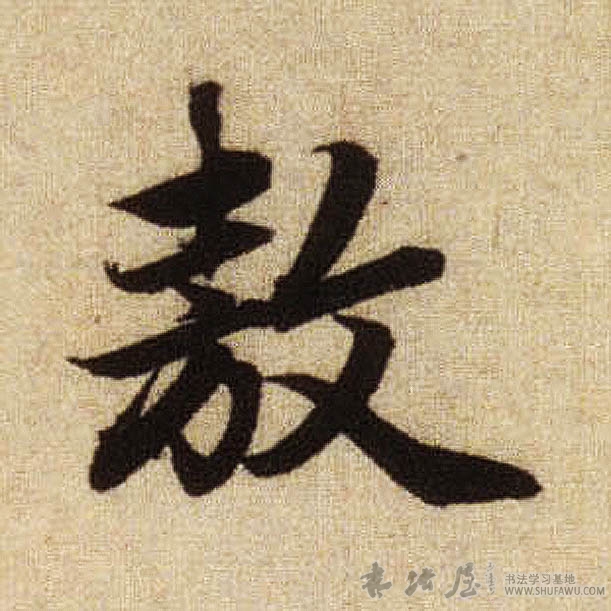 敖
书法屋 书法学习基地
WWW.SHUFAWU.COM